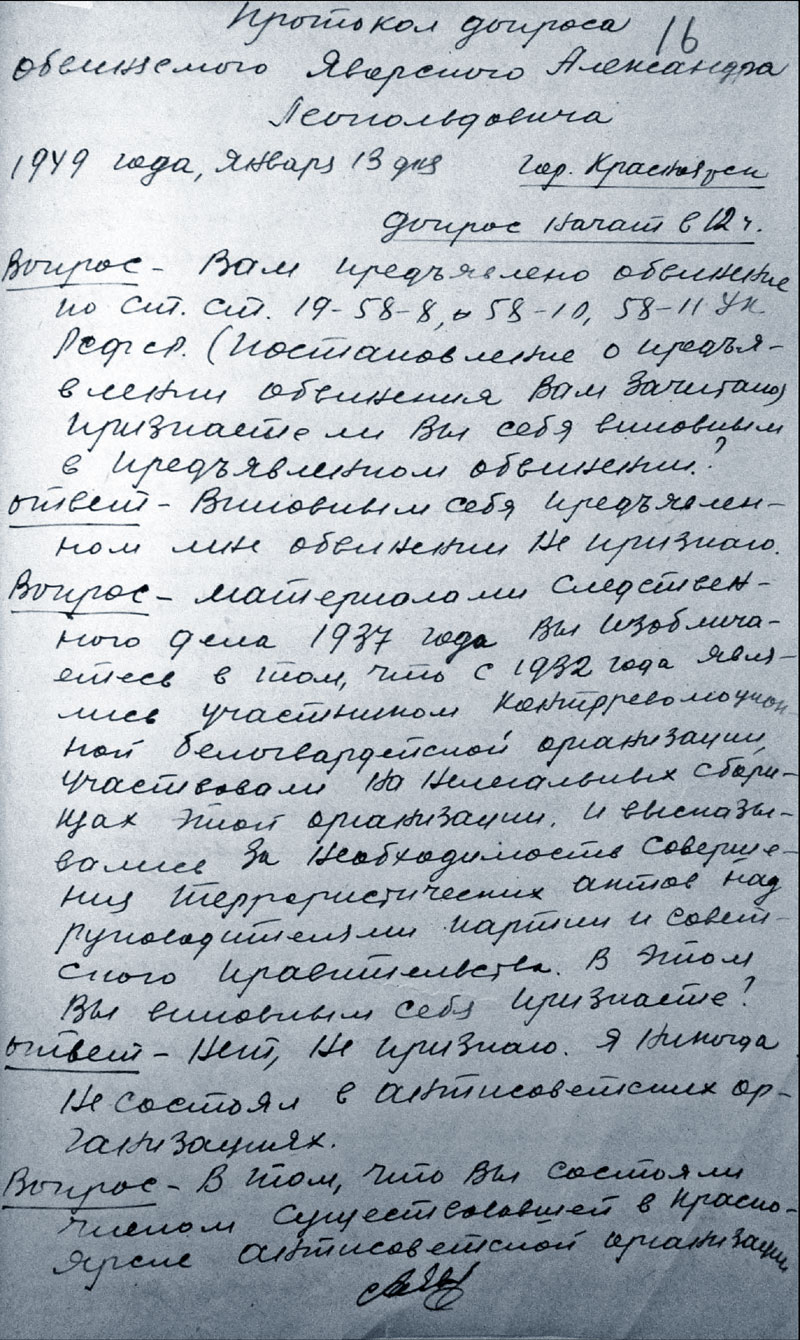 Протокол допроса
16
обвиняемого Яворского Александра
Леопольдовича
1949 года, января 13 дня гор. Красноярск
допрос начат в 12 ч.
Вопрос - Вам предъявлено обвинение
по ст. ст. 19-58-8, 58-10, 58-11 УК
РСФСР. (Постановление о предъя-
влении обвинения Вам зачитано)
признаете ли Вы себя виновным
в предъявленном обвинении?
Ответ - Виновным себя предъявлен-
ном мне обвинении не признаю.
Вопрос - материалами следствен-
ного дела 1937 года Вы изоблича-
етесь в том, что с 1932 года явля-
лись участником контрреволюцион-
ной белогвардейской организации
участвовали на нелегальных сбори-
щах этой организации. и высказы-
вались за необходимость соверше-
ния террористических актов над
руководителями партии и совет-
ского правительства. В этом
Вы виновным себя признаете?
Ответ - Нет, не признаю. Я никогда
не состоял в антисоветских ор-
ганизациях.
Вопрос - В том, что Вы состояли
членом существовавшей в Красно-
ярске антисоветской организации